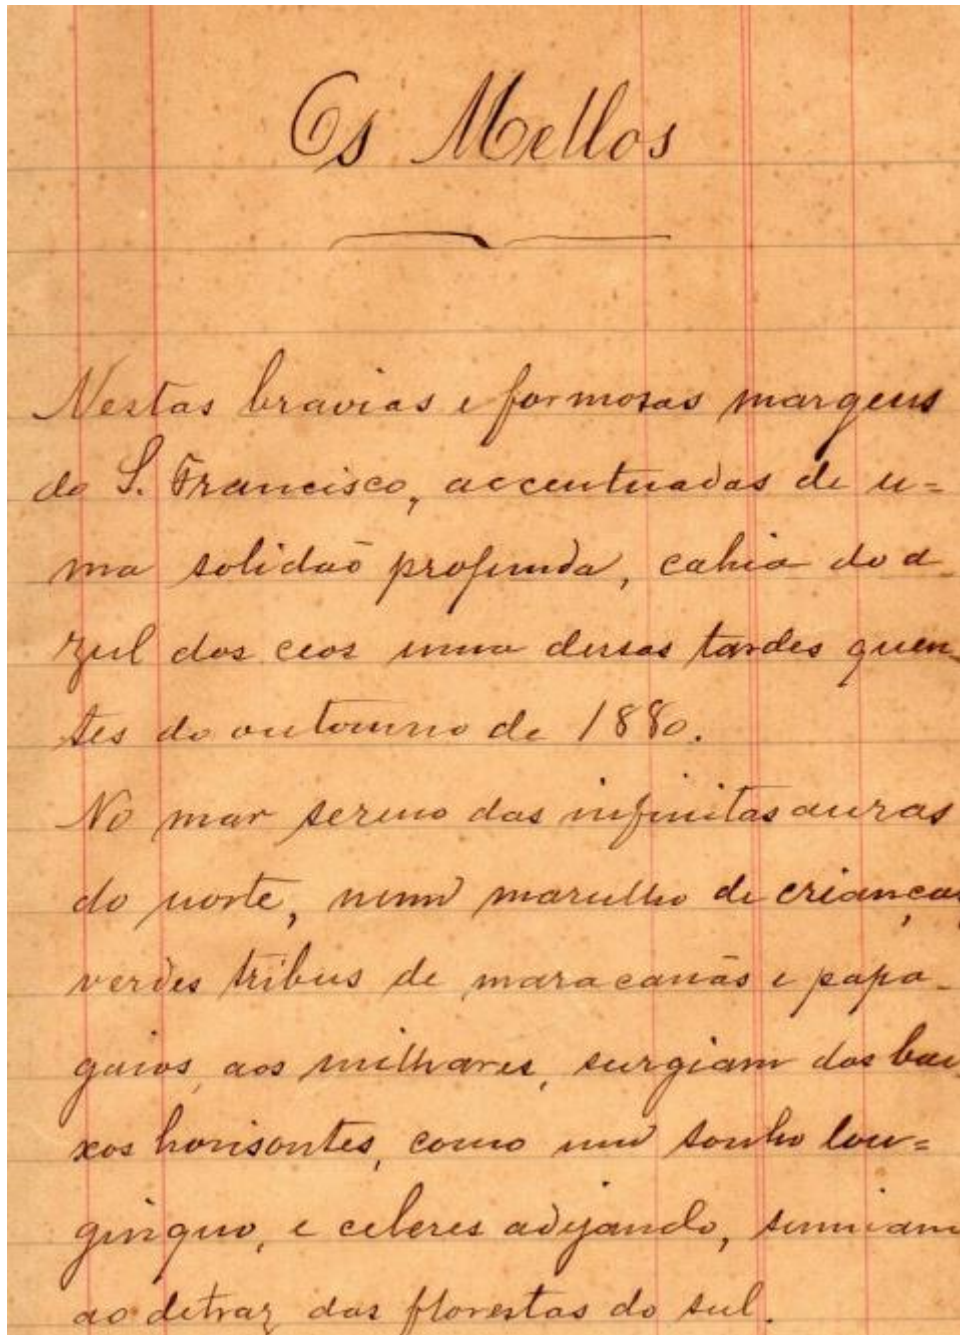 Os Mellos
Nestas bravias e formosas margens
do S. Francisco, accentuadas de u=
ma solidão profunda, cahia do a-
zul dos ceos uma dessas tardes quen-
tes do outomno de 1880.
No mar sereno das infinitas auras
do norte, num marulho de crianças,
verdes tribus de maracanãs e papa-
gaios, aos milhares, surgiam dos bai-
xos horisontes, como um sonho lon=
ginquo, e celeres adejando, sumiam
ao detraz das florestas do sul.